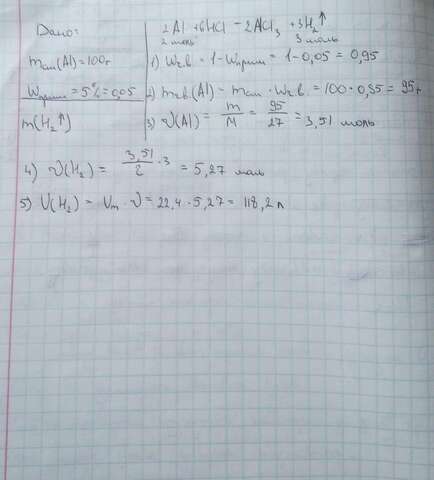 Дано:
mсм(Al)=100г
Wприм=5%=0,05
m(H₂↑)
2Al+6HCl=2AlCl₃+3H₂↑
2 моль 3 моль
1) Wч.в.=1-Wприм=1-0,05=0,95
2) mч.в.(Al)-mсм·Wч.в.=100·0,95=95г
3) ν(Al)=m/M=95/27=3,51 моль
4) ν(H₂)=3,51/2·3=5,27 моль
5) V(H₂)=Vm·ν=22,4·5,27=118,2л